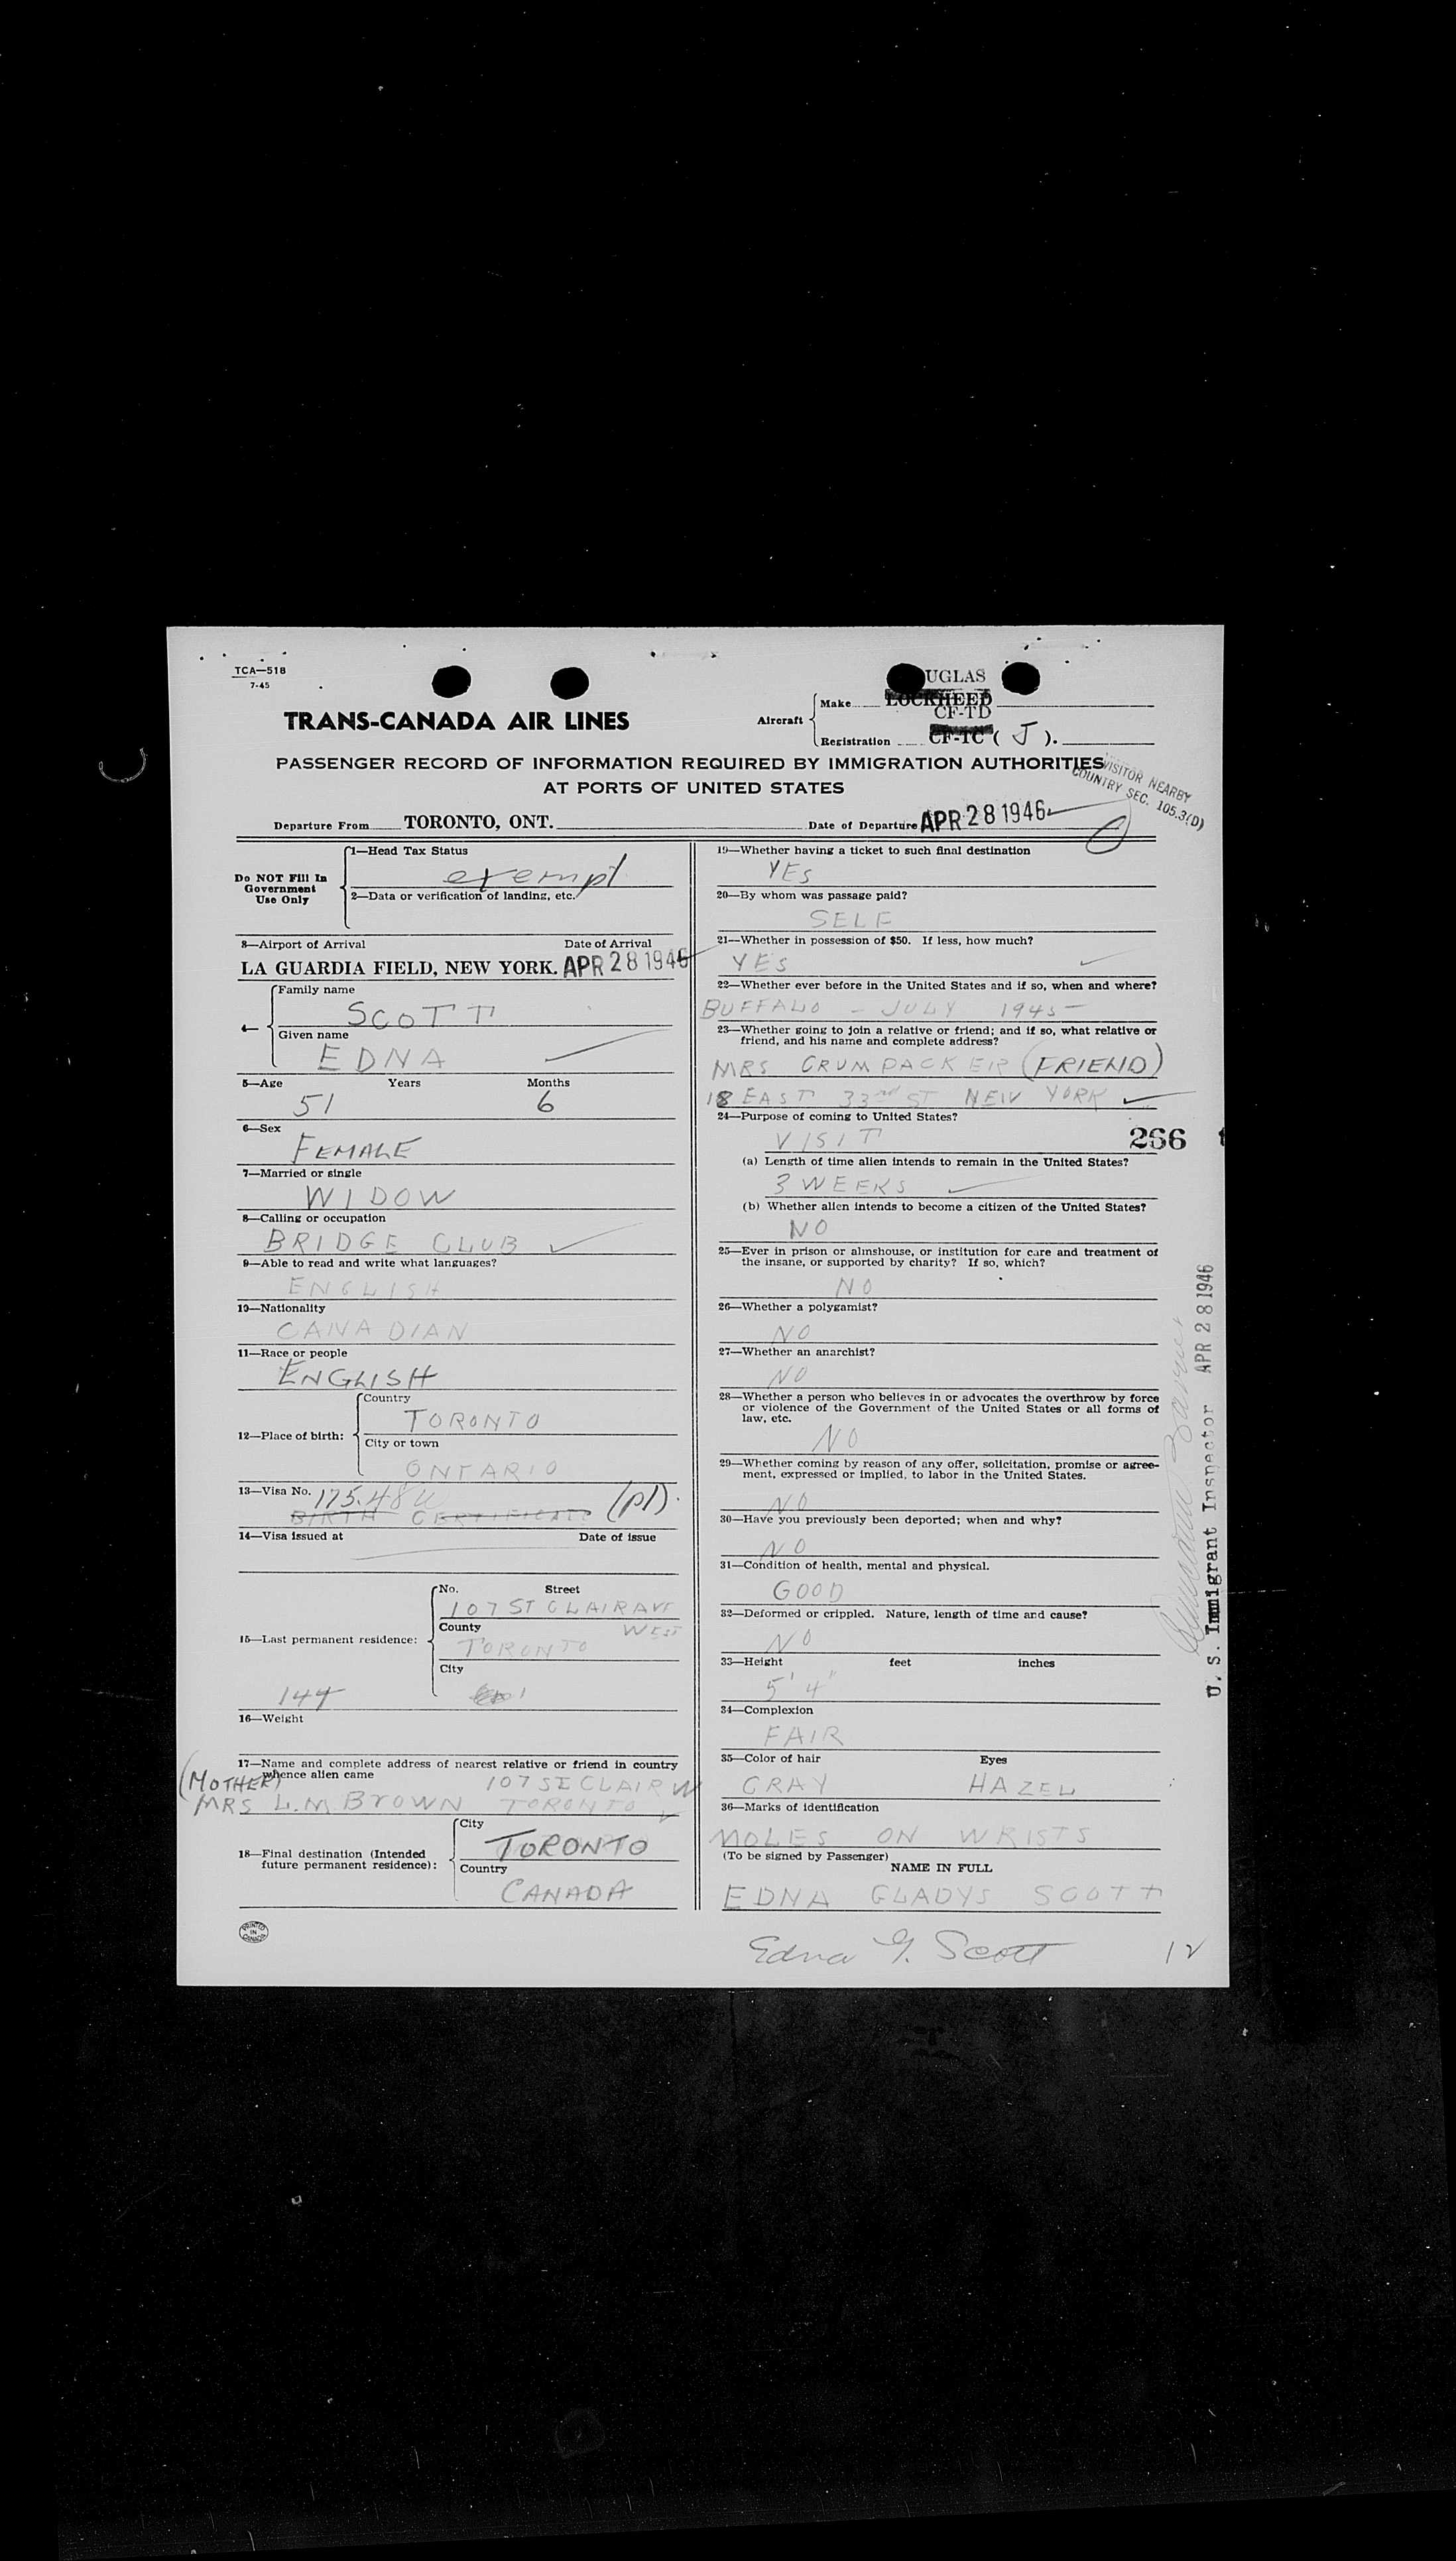 TCA—518
7-45
UGLAS
TRANS-CANADA AIR LINES
Aircraft
Make LOCKHEED
CF-TD
Registration CF-TC ( J ).
PASSENGER RECORD OF INFORMATION REQUIRED BY IMMIGRATION AUTHORITIES
AT PORTS OF UNITED STATES
VISITOR NEARBY
COUNTRY SEC. 105.3(D)
Departure From TORONTO, ONT. Date of Departure APR 28 1946
Do NOT Fill In
Government
Use Only
1—Head Tax Status
exempt
2—Data or verification of landing, etc.
3—Airport of Arrival Date of Arrival
LA GUARDIA FIELD, NEW YORK. APR 28 1946
4—
Family name
SCOTT
Given name
EDNA
5—Age Years Months
51 6
6—Sex
FEMALE
7—Married or single
WIDOW
8—Calling or occupation
BRIDGE CLUB
9—Able to read and write what languages?
ENGLISH
10—Nationality
CANADIAN
11—Race or people
ENGLISH
12—Place of birth:
Country
TORONTO
City or town
ONTARIO
13—Visa No. 175.48
BIRTH CERTIFICATE (pl).
14—Visa issued at Date of issue
15—Last permanent residence:
No. Street
107 ST CLAIR AVE
County WEST
TORONTO
City
144
16—Weight
17—Name and complete address of nearest relative or friend in country
whence alien came
(MOTHER) 107 ST CLAIR W
MRS L.M BROWN TORONTO
18—Final destination (Intended
future permanent residence):
City
TORONTO
Country
CANADA
PRINTED
IN
CANADA
19—Whether having a ticket to such final destination
YES
20—By whom was passage paid?
SELF
21—Whether in possession of $50. If less, how much?
YES
22—Whether ever before in the United States and if so, when and where?
BUFFALO - JULY 1945
23—Whether going to join a relative or friend; and if so, what relative or
friend, and his name and complete address?
MRS CRUMPACKER (FRIEND)
18 EAST 33rd ST NEW YORK
24—Purpose of coming to United States?
VISIT
266
(a) Length of time alien intends to remain in the United States?
3 WEEKS
(b) Whether alien intends to become a citizen of the United States?
NO
25—Ever in prison or almshouse, or institution for care and treatment of
the insane, or supported by charity? If so, which?
NO
26—Whether a polygamist?
NO
27—Whether an anarchist?
NO
28—Whether a person who believes in or advocates the overthrow by force
or violence of the Government of the United States or all forms of
law, etc.
NO
29—Whether coming by reason of any offer, solicitation, promise or agree-
ment, expressed or implied, to labor in the United States.
NO
30—Have you previously been deported; when and why?
NO
31—Condition of health, mental and physical.
GOOD
32—Deformed or crippled. Nature, length of time and cause?
NO
33—Height feet inches
5' 4"
34—Complexion
FAIR
35—Color of hair Eyes
GRAY HAZEL
36—Marks of identification
MOLES ON WRISTS
(To be signed by Passenger)
NAME IN FULL
EDNA GLADYS SCOTT
Edna G. Scott
12
U. S. Immigrant Inspector APR 28 1946